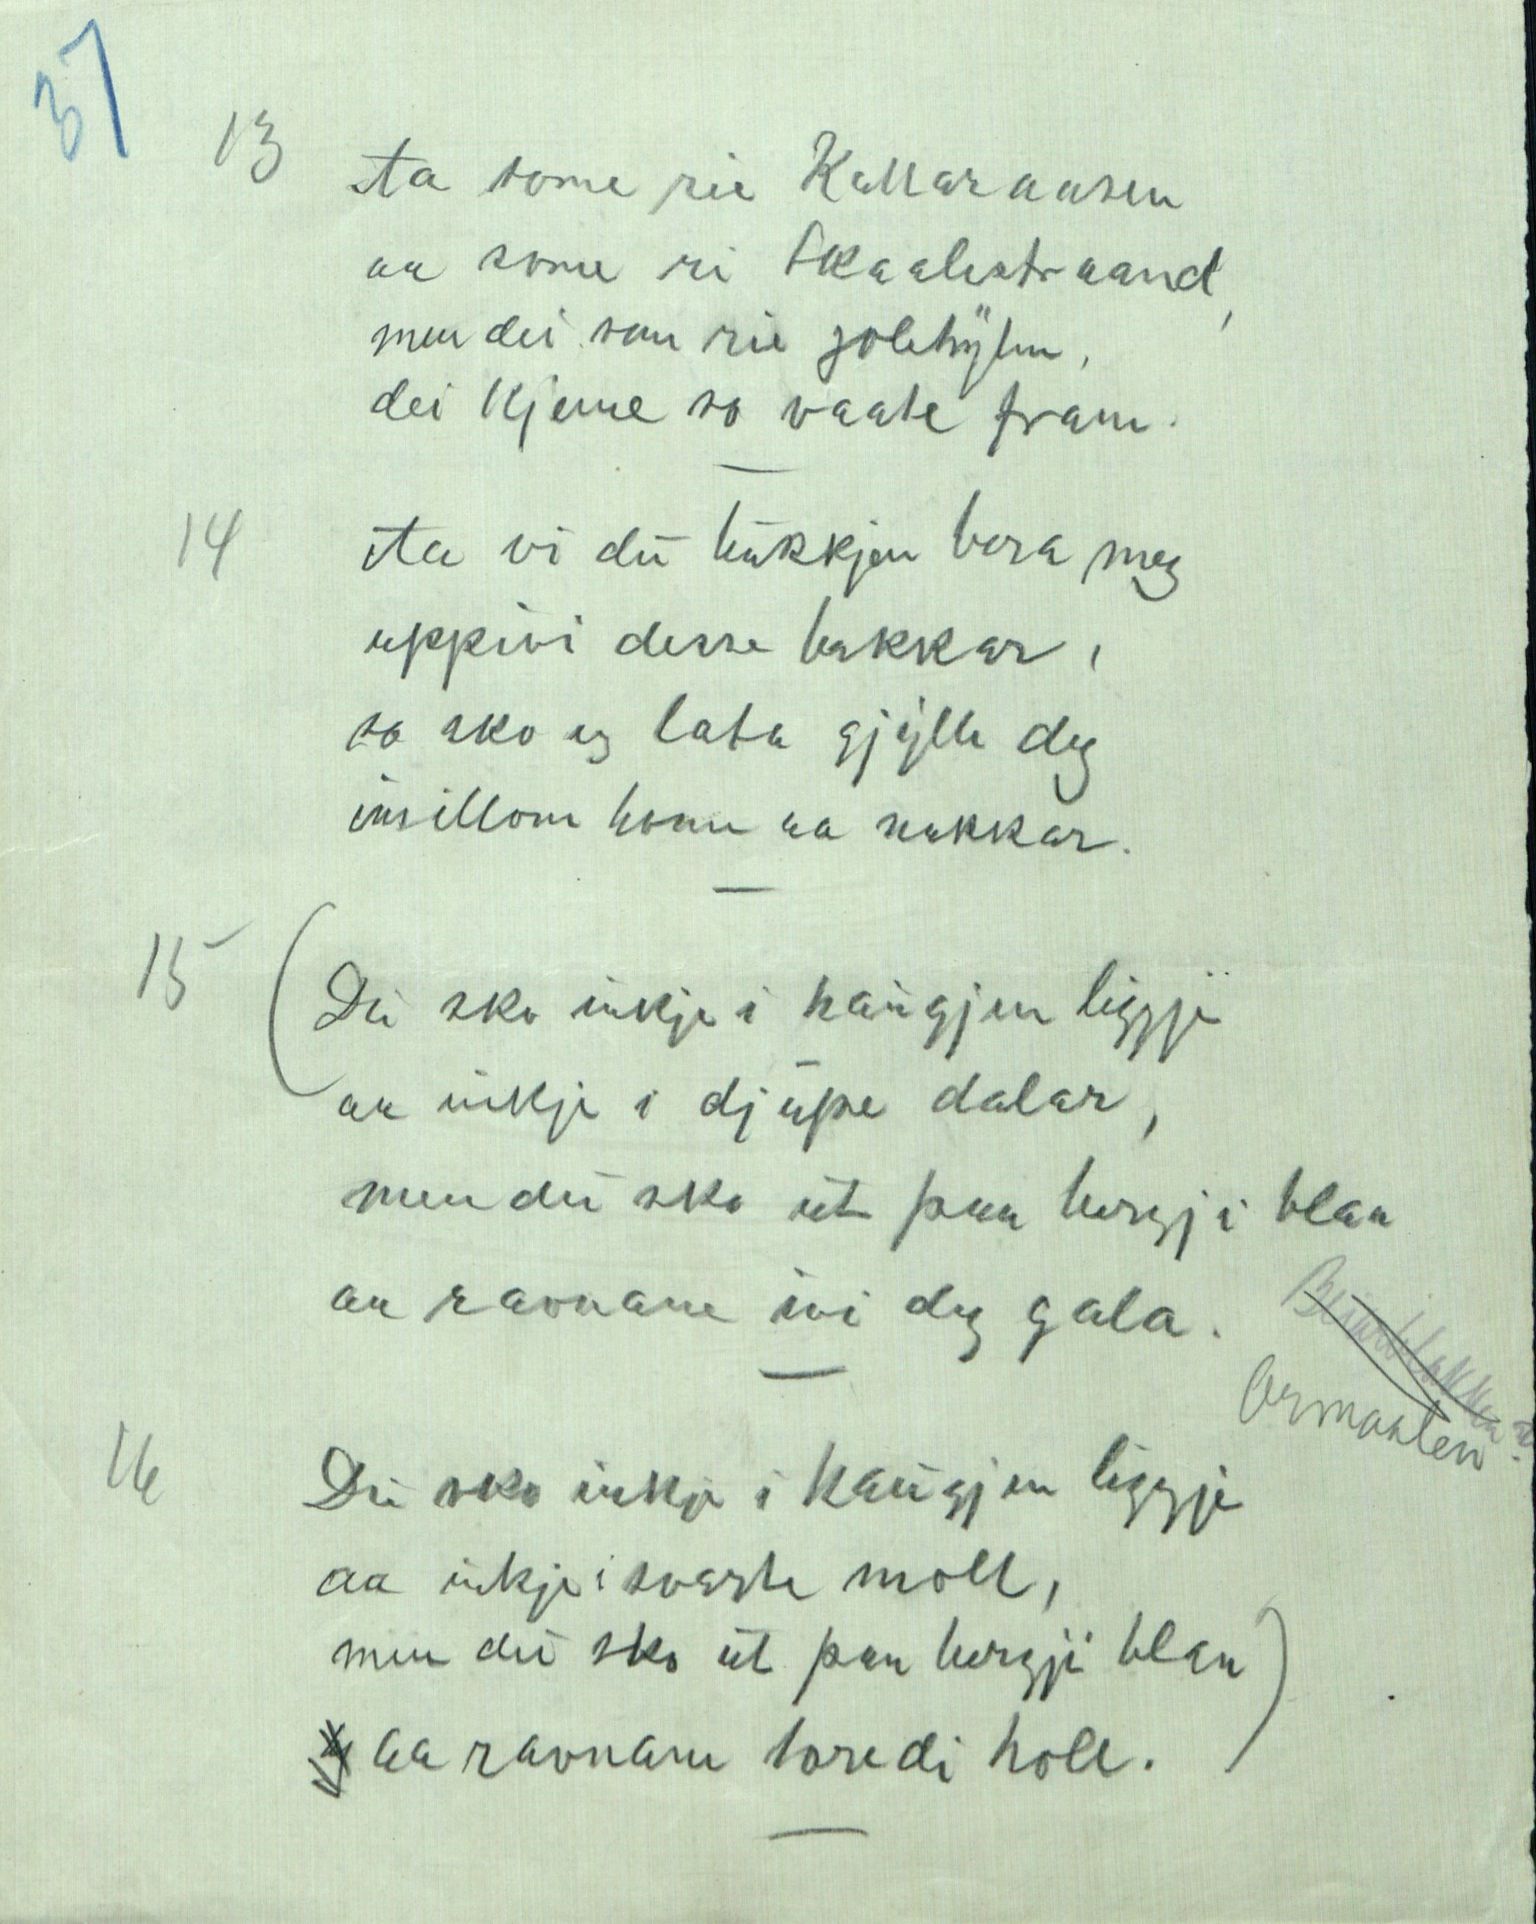 37
13
Aa some rie Kallaraasen
aa some ri Skaalestraand,
men dei som rie
dei kjeme so vaate fram.
14
Aa vi dü bükkjen bera meg
uppivi desse bakkar,
so sko eg lata gjylle deg
imillom honn aa nakkar.
15
(Dü sko inkje i haugjen liggji
aa inkje i djüpe dalar,
men dü sko üt paa bergji blaa
aa ravnane ivi deg gala.
Ormaalen
16
Dü sko inkje i haugjen liggji
aa inkje i svarte moll,
men dü sko üt paa bergji blaa)
aa ravnane bore di holl.